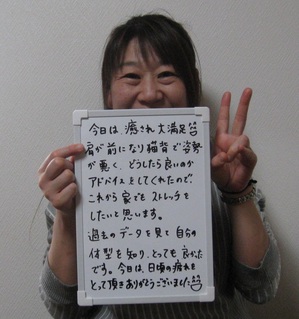 今日は、癒され大満足
肩が前になり猫背で姿勢
が悪く、どうしたら良いのか
アドバイスをしてくれたので、
これから家でもストレッチを
したいと思います。
過去のデータを見た自分の
体型を知り、とっても良かった
です。今日は、日頃の疲れを
とって頂きありがとうございました